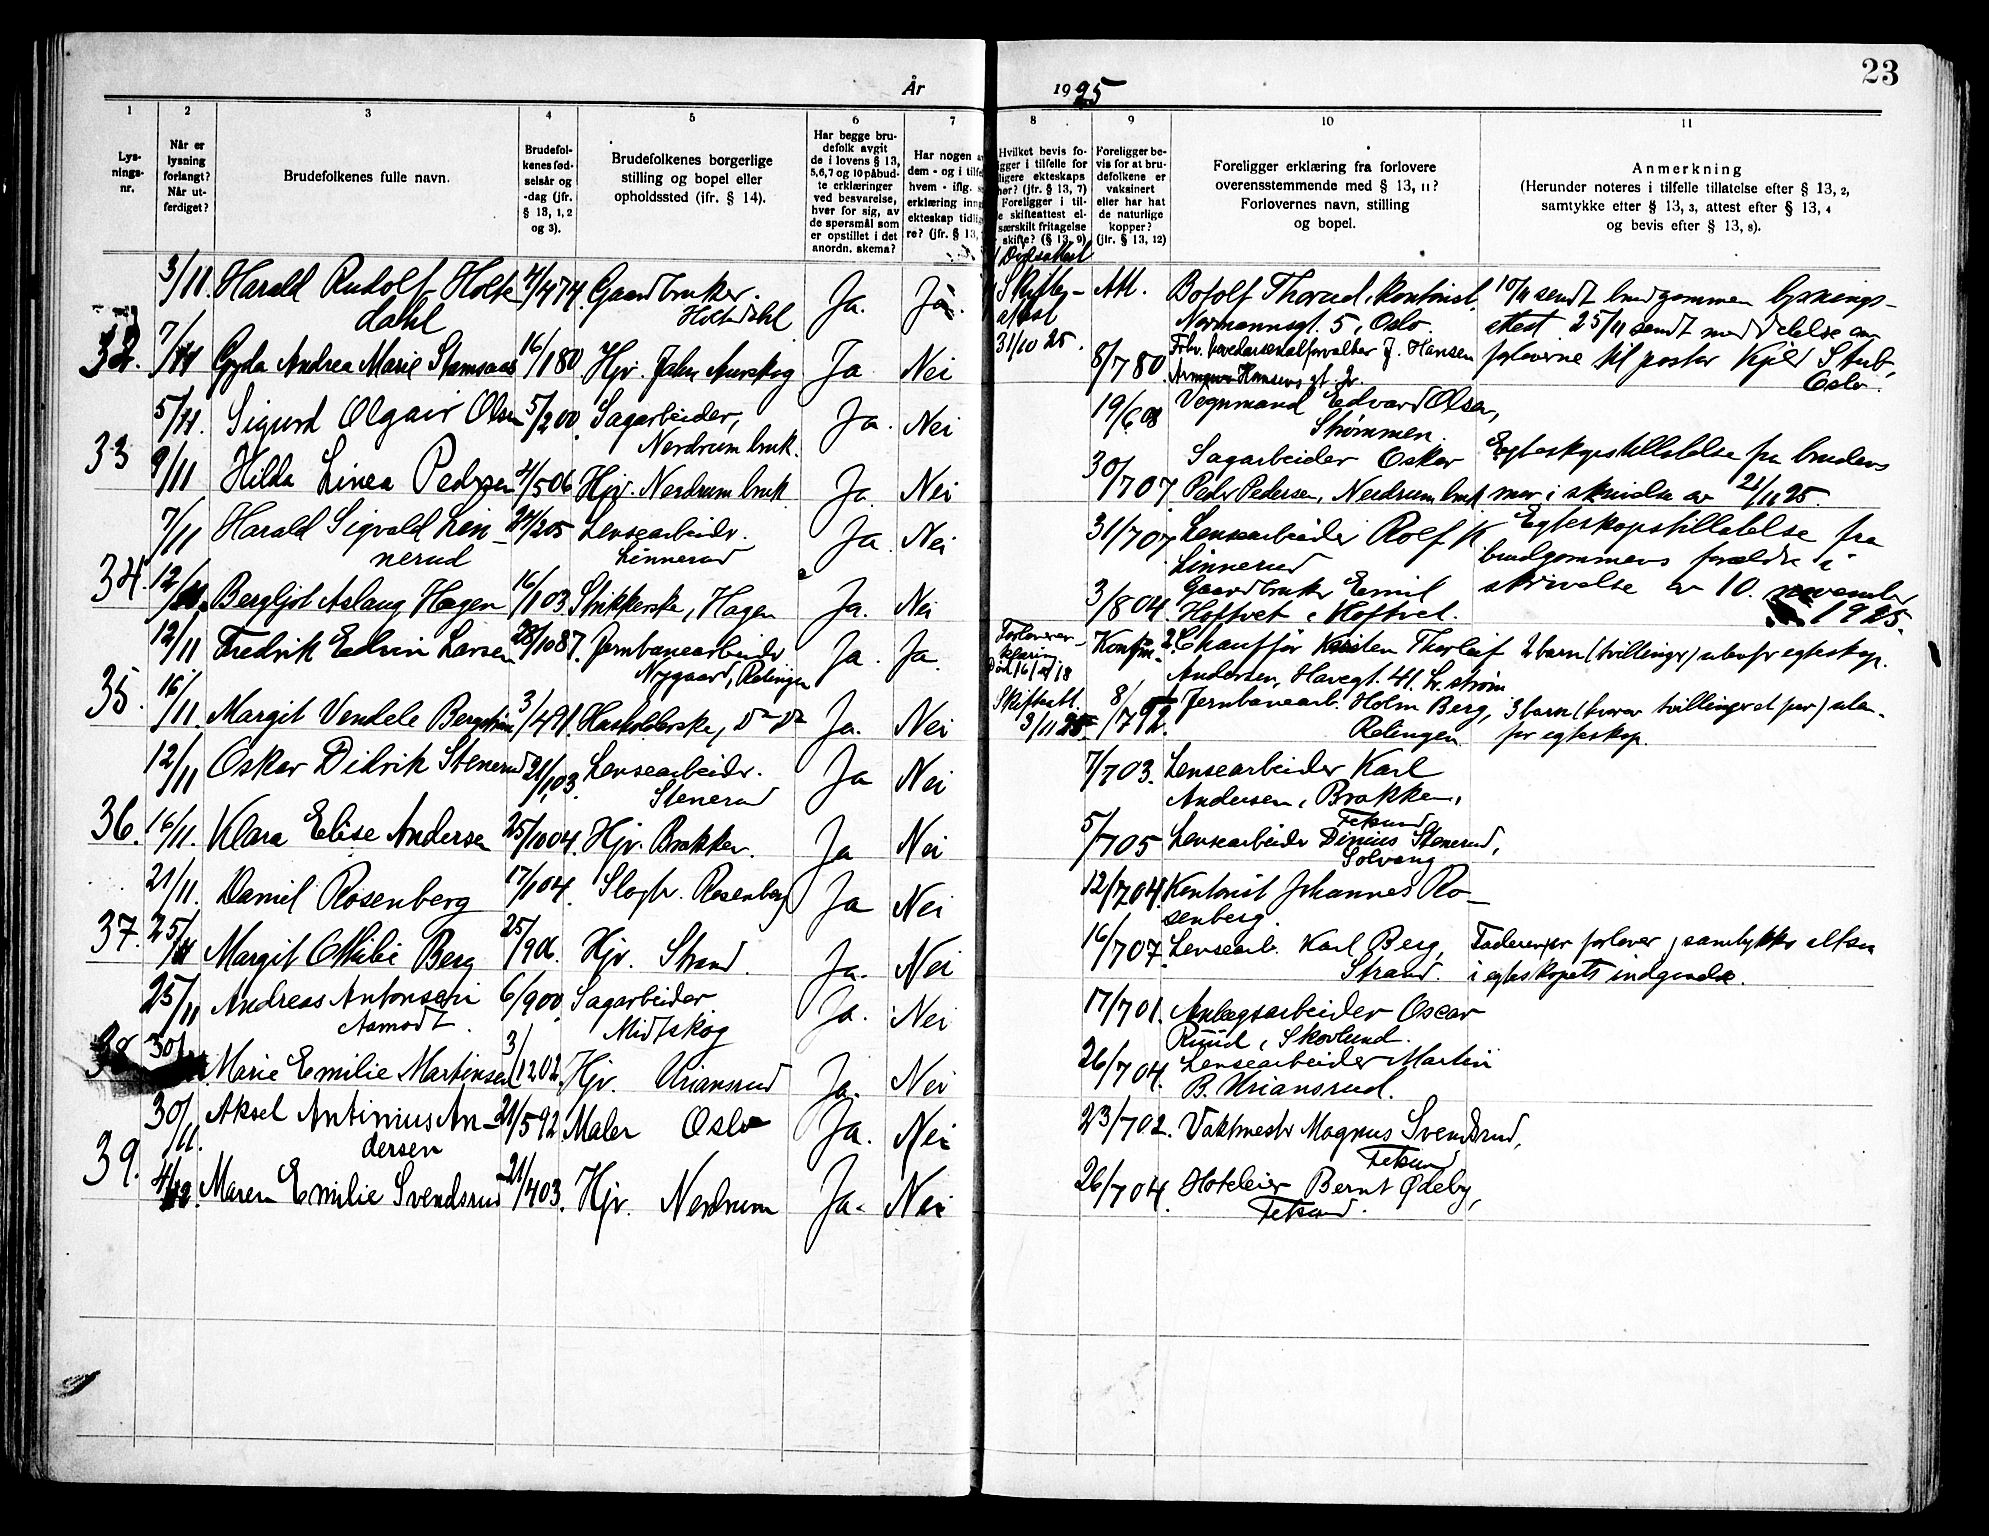 23
År 1925
1
2
3
4
5
6
7
8
9
10
11
Lys-
nings-
nr.
Når er
lysning
forlangt?
Når ut-
ferdiget?
Brudefolkenes fulle navn.
Brudefol-
kenes fød-
selsår og
-dag (jfr.
§ 13, 1, 2
og 3).
Brudefolkenes borgerlige
stilling og bopel eller
opholdssted (jfr. § 14).
Har begge bru-
defolk avgit
de i lovens § 13,
5,6,7 og 10 påbud-
te erklæringer
ved besvarelse,
hver for sig, av
de spørsmål som
er opstillet i det
anordn. skema?
Har nogen
dem - og i tilf
hvem - iflg.
erklæring inn
ekteskap tidli
re? (jfr. § 13,
Hvilket bevis fo-
ligger i tilfelle for
ligere ekteskaps
hør? (jfr. § 13, 7)
Foreligger i til-
e skifteattest el-
særskilt fritagelse
skifte? (§ 13, 9)
Foreligger be-
vis for at bru-
defolkene er
vaksinert
eller har hat
de naturlige
kopper?
(jfr. § 13, 12)
Foreligger erklæring fra forlovere
overensstemmende med § 13, 11?
Forlovernes navn, stilling
og bopel.
Anmerkning
(Herunder noteres i tilfelle tillatelse efter § 13, 2,
samtykke efter § 13, 3, attest efter § 13, 4
og bevis efter § 13, 8).
3/11. Harald Rudolf Holte- 4/4 74. Gaardbruker. Ja. Ja. Skifte- Att. Botolf Thorud, kontorist, 10/11 sendt brudgommen lysnings-
dahl Holtedahl attest Normannsgt. 5, Oslo. attest 25/11 sendt meddelelse om
32. 7/11 Gyda Andrea Marie Stamsaas 16/1 80 Hjv. Aurskog Ja Nei 31/10 25. 8/7 80. J. Hansen forloverne til pastor Kjeld Stub,
Oslo.
5/11. Sigurd Olgair Olsen 5/2 00. Sagarbeider, Ja. Nei 19/6 08 Vegnmand Edvard Olsen,
Nerdrum bruk. Strømmen.
33 9/11 Hilda Linea Pedersen 4/5 06 Hjv. Nerdrum bruk Ja Nei 30/7 07. Sagarbeider Oskar Egteskapstillatelse fra brudens
Peder Pedersen, Nerdrum bruk mor i skrivelse av 21/11 25.
7/11 Harald Sigvald Lin- 24/2 05 Lensearbeider. Ja. Nei 31/7 07 Lensearbeider Rolf K Egteskapstillatelse fra
nerud Linnerud Linnerud brudgommens forældre i
34. 12/11. Bergljot Aslaug Hagen 16/1 03 Strikkerske, Hagen Ja. Nei 3/8 04. Gaardbruker Emil skrivelse av 10. november
Hoftvet, Hoftvet. 1925.
12/11 Fredrik Edvin Larsen 28/10 87. Jernbanearbeider Ja. Ja. Forlover- Konfm. 2. Chauffør Karsten Thorleif 2 barn (tvillinger) utenfor egteskap.
Nygaard, Rælingen klæring Andersen, Havegt. 41. L.strøm
35. 16/11. Margit Vendele Bergstrøm 3/4 91. Husholderske, Do Do Ja. Nei Skifteatt. 3/11 25 8/7 92. Jernbanearb. Holm Berg, 3 barn (hvorav tvillinger et par) uten-
Rælingen for egteskap.
12/11 Oskar Didrik Stenerud 21/1 03. Lensearbeider. Ja Nei 7/7 03. Lensearbeider Karl
Stenerud Andersen, Brakken,
Fetsund
36. 16/11. Klara Elise Andersen 25/10 04. Hjv. Brakken. Ja Nei 5/7 05 Lensearbeider Dinius Stenerud,
Solvang
21/11. Daniel Rosenberg 17/1 04. Slagtr. Rosenberg Ja Nei 12/7 04. Kontorist Johannes Ro-
senberg.
37. 25/11 Margit Otilie Berg 25/9 06. Hjv. Strand. Ja. Nei 16/7 07. Lensearb. Karl Berg, Faderen, er forlover, samtykker altsaa
Strand. i egteskapets indgaaelse.
25/11 Andreas Antonsen 6/9 00. Sagarbeider Ja. Nei 17/7 01. Anlægsarbeider Oscar
Aamodt. Midtskog Ruud, Skovlund.
38 30/11. Marie Emilie Martinsen 3/12 02. Hjv. Uriansrud Ja. Nei 26/7 04. Lensearbeider Martin
B. Uriansrud.
30/11. Aksel Antinius An- 21/5 92. Maler Oslo Ja. Nei 23/7 02. Vaktmester Magnus Svendsrud,
dersen Fetsund
39. 4/12. Maren Emilie Svendsrud 21/4 03. Hjv. Nerdrum Ja. Nei 26/7 04. Hoteleier Bernt Ødeby,
Fetsund.